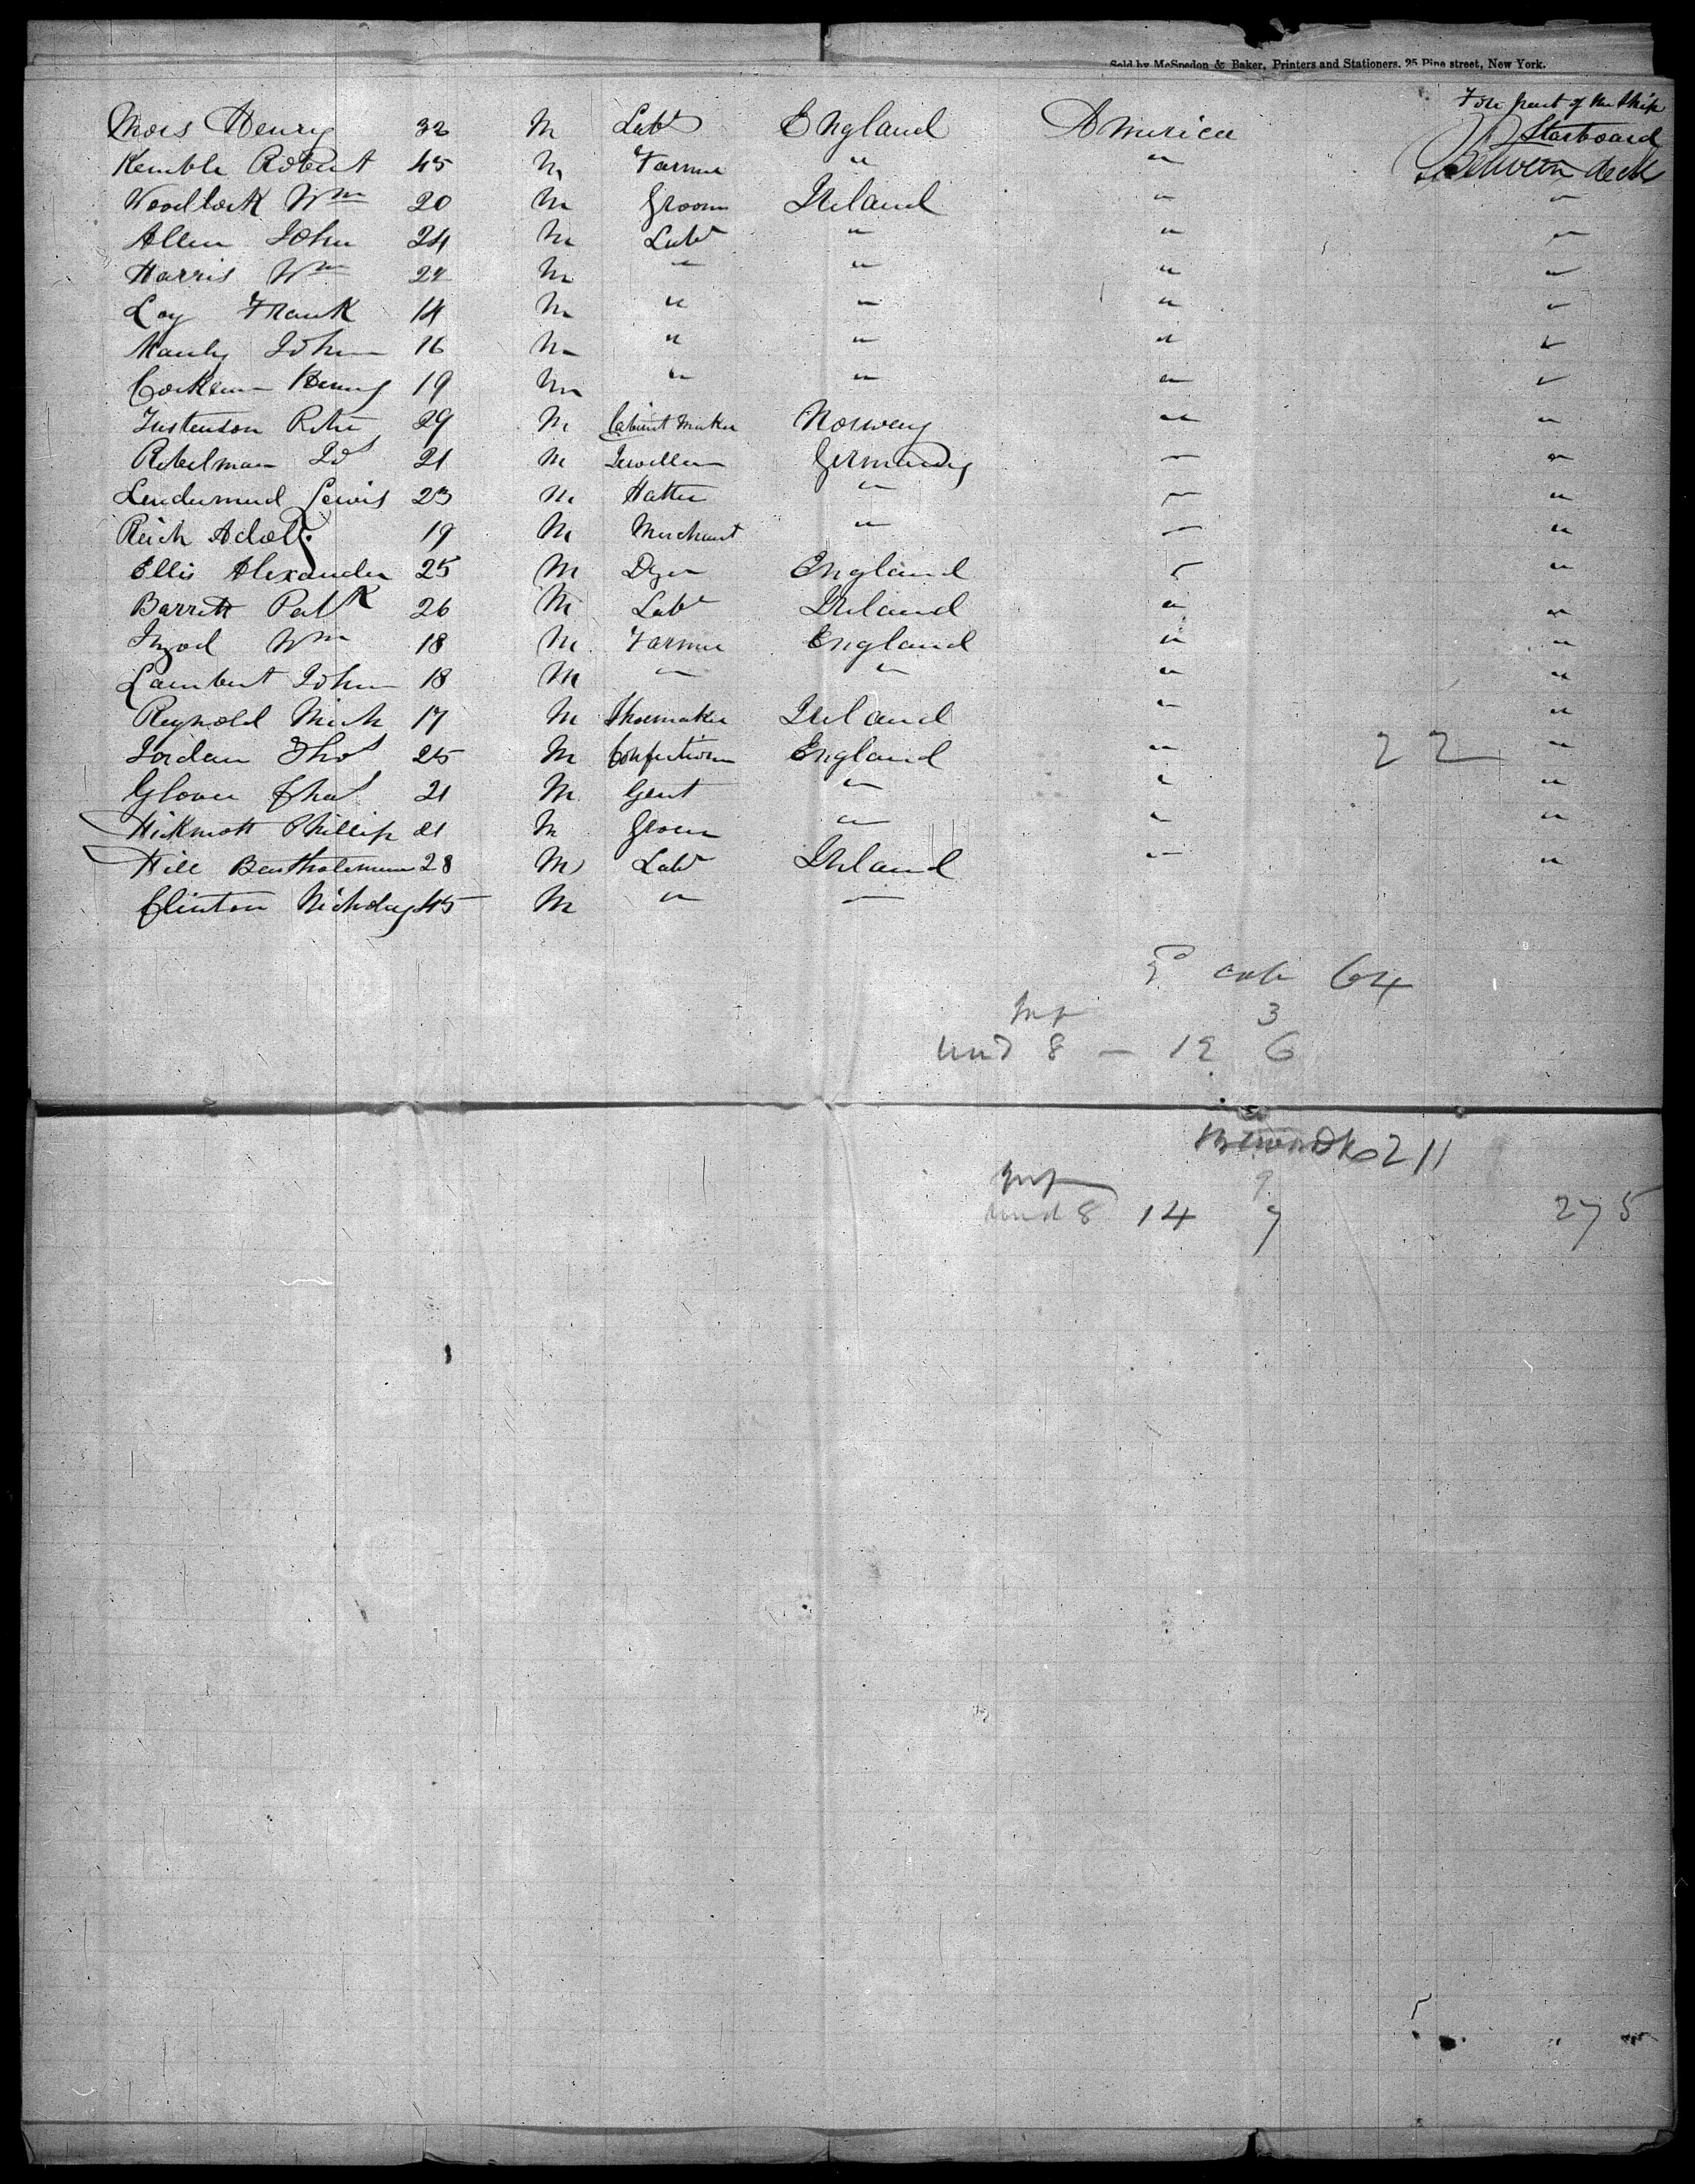 Sold by McSpedon & Baker, Printers and Stationers, 25 Pine street, New York.
Fore part of the Ship
Starboard
Between deck
Henry 32 M Labr England America
Kemble Robert 45 M Farmer " "
Woodlock Wm 20 M Groom Ireland " "
Allen John 24 M Labr " " "
Harris Wm 22 M " " " "
Loy Frank 14 M " " " "
Manly John 16 M " " " "
Henry 19 M " " " "
Justenson Peter 29 M Cabinet Maker Norway " "
21 M Jeweller Germany " "
Lewis 23 M Hatter " " "
Reich Adolf 19 M Merchant " " "
Ellis Alexander 25 M Dyer England " "
Barrett Patk 26 M Labr Ireland " "
Wm 18 M Farmer England " "
Lambert John 18 M " " " "
Reynold Mich 17 M Shoemaker Ireland " "
Jordan Thos 25 M Confectioner England " 22 "
Glover Chas 21 M Gent " " "
Hickmott Phillip 21 M Grocer " " "
Hill Bartholemew 28 M Labr Ireland " "
Clinton Nicholas 45 M " "
2d cab 64
3
und 8 - 12 6
Between Dks 211
9
und 8 14 7 275